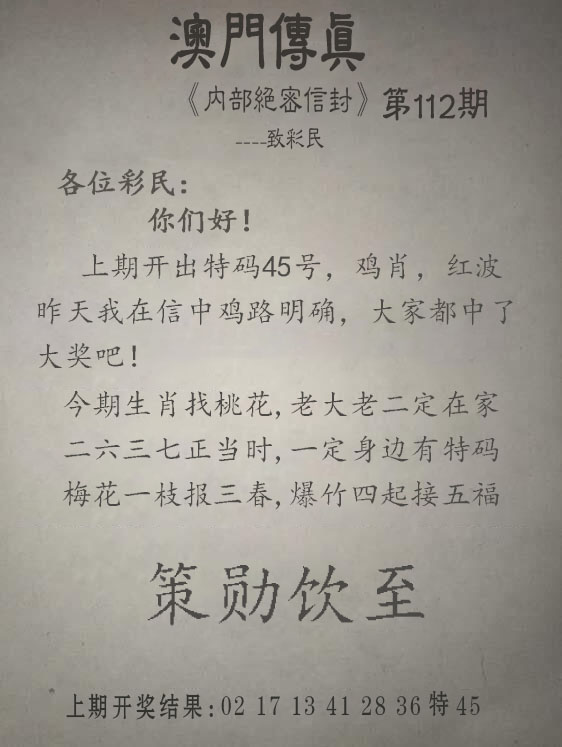 澳門傳真
《内部絕密信封》第112期
----致彩民
各位彩民：
你们好！
上期开出特码45号，鸡肖，红波
昨天我在信中鸡路明确，大家都中了
大奖吧！
今期生肖找桃花,老大老二定在家
二六三七正当时,一定身边有特码
梅花一枝报三春,爆竹四起接五福
策勋饮至
上期开奖结果:02 17 13 41 28 36 特 45